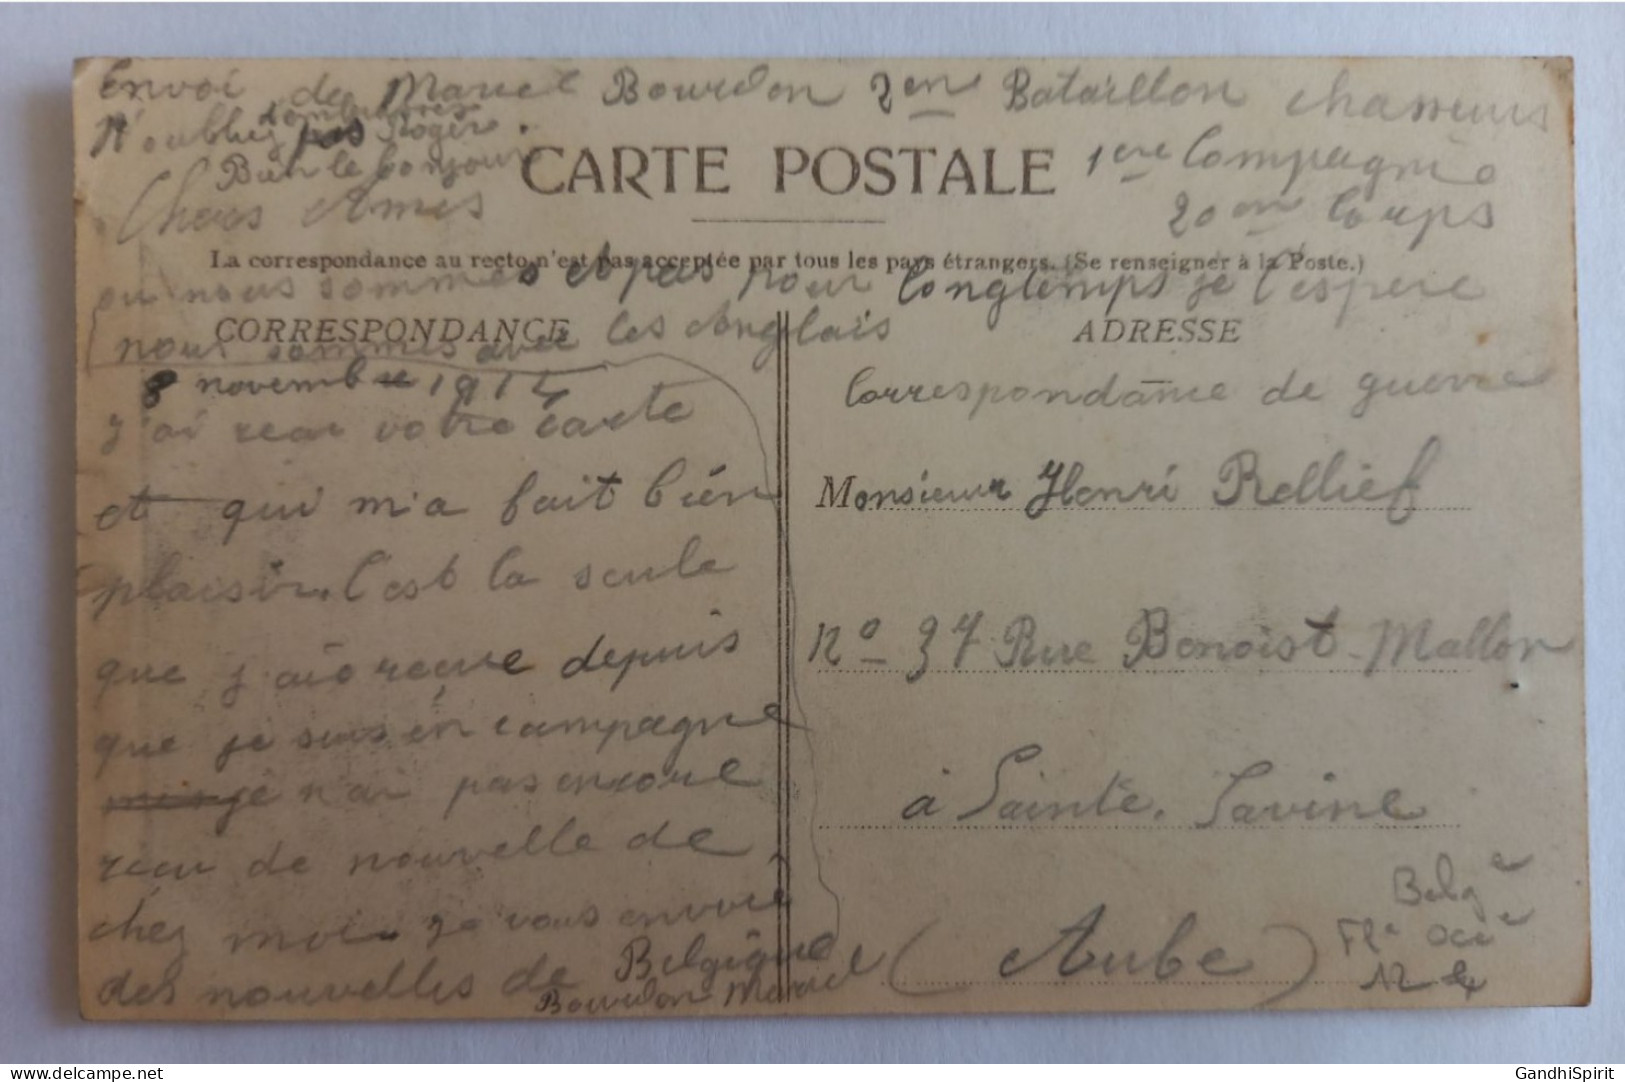 Envoi de Marcel Bourdon 2en Bataillon chasseurs
N'oubliez pas Roger.
Bien le bonjour
CARTE POSTALE
1ere Compagnie
20en Corps
Chers Amis
La correspondance au recto n'est pas acceptée par tous les pays étrangers. (Se renseigner à la Poste.)
ou nous sommes et pas pour longtemps je l'espere
nous sommes avec les Anglais
CORRESPONDANCE
8 novembre 1914
J'ai recu votre carte
et qui m'a fait bien
plaisir. C'est la seule
que j'ai recue depuis
que je suis en campagne
je n'ai pas encore
recu de nouvelle de
chez moi je vous envoie
des nouvelles de Belgique
Bourdon Marcel
ADRESSE
Correspondance de guerre
Monsieur Henri Rellief
No 37 Rue Benoist-Mallon
à Sainte. Savine
(Aube)
Belge
Fle Occe
12 €
delcampe.net
GandhiSpirit